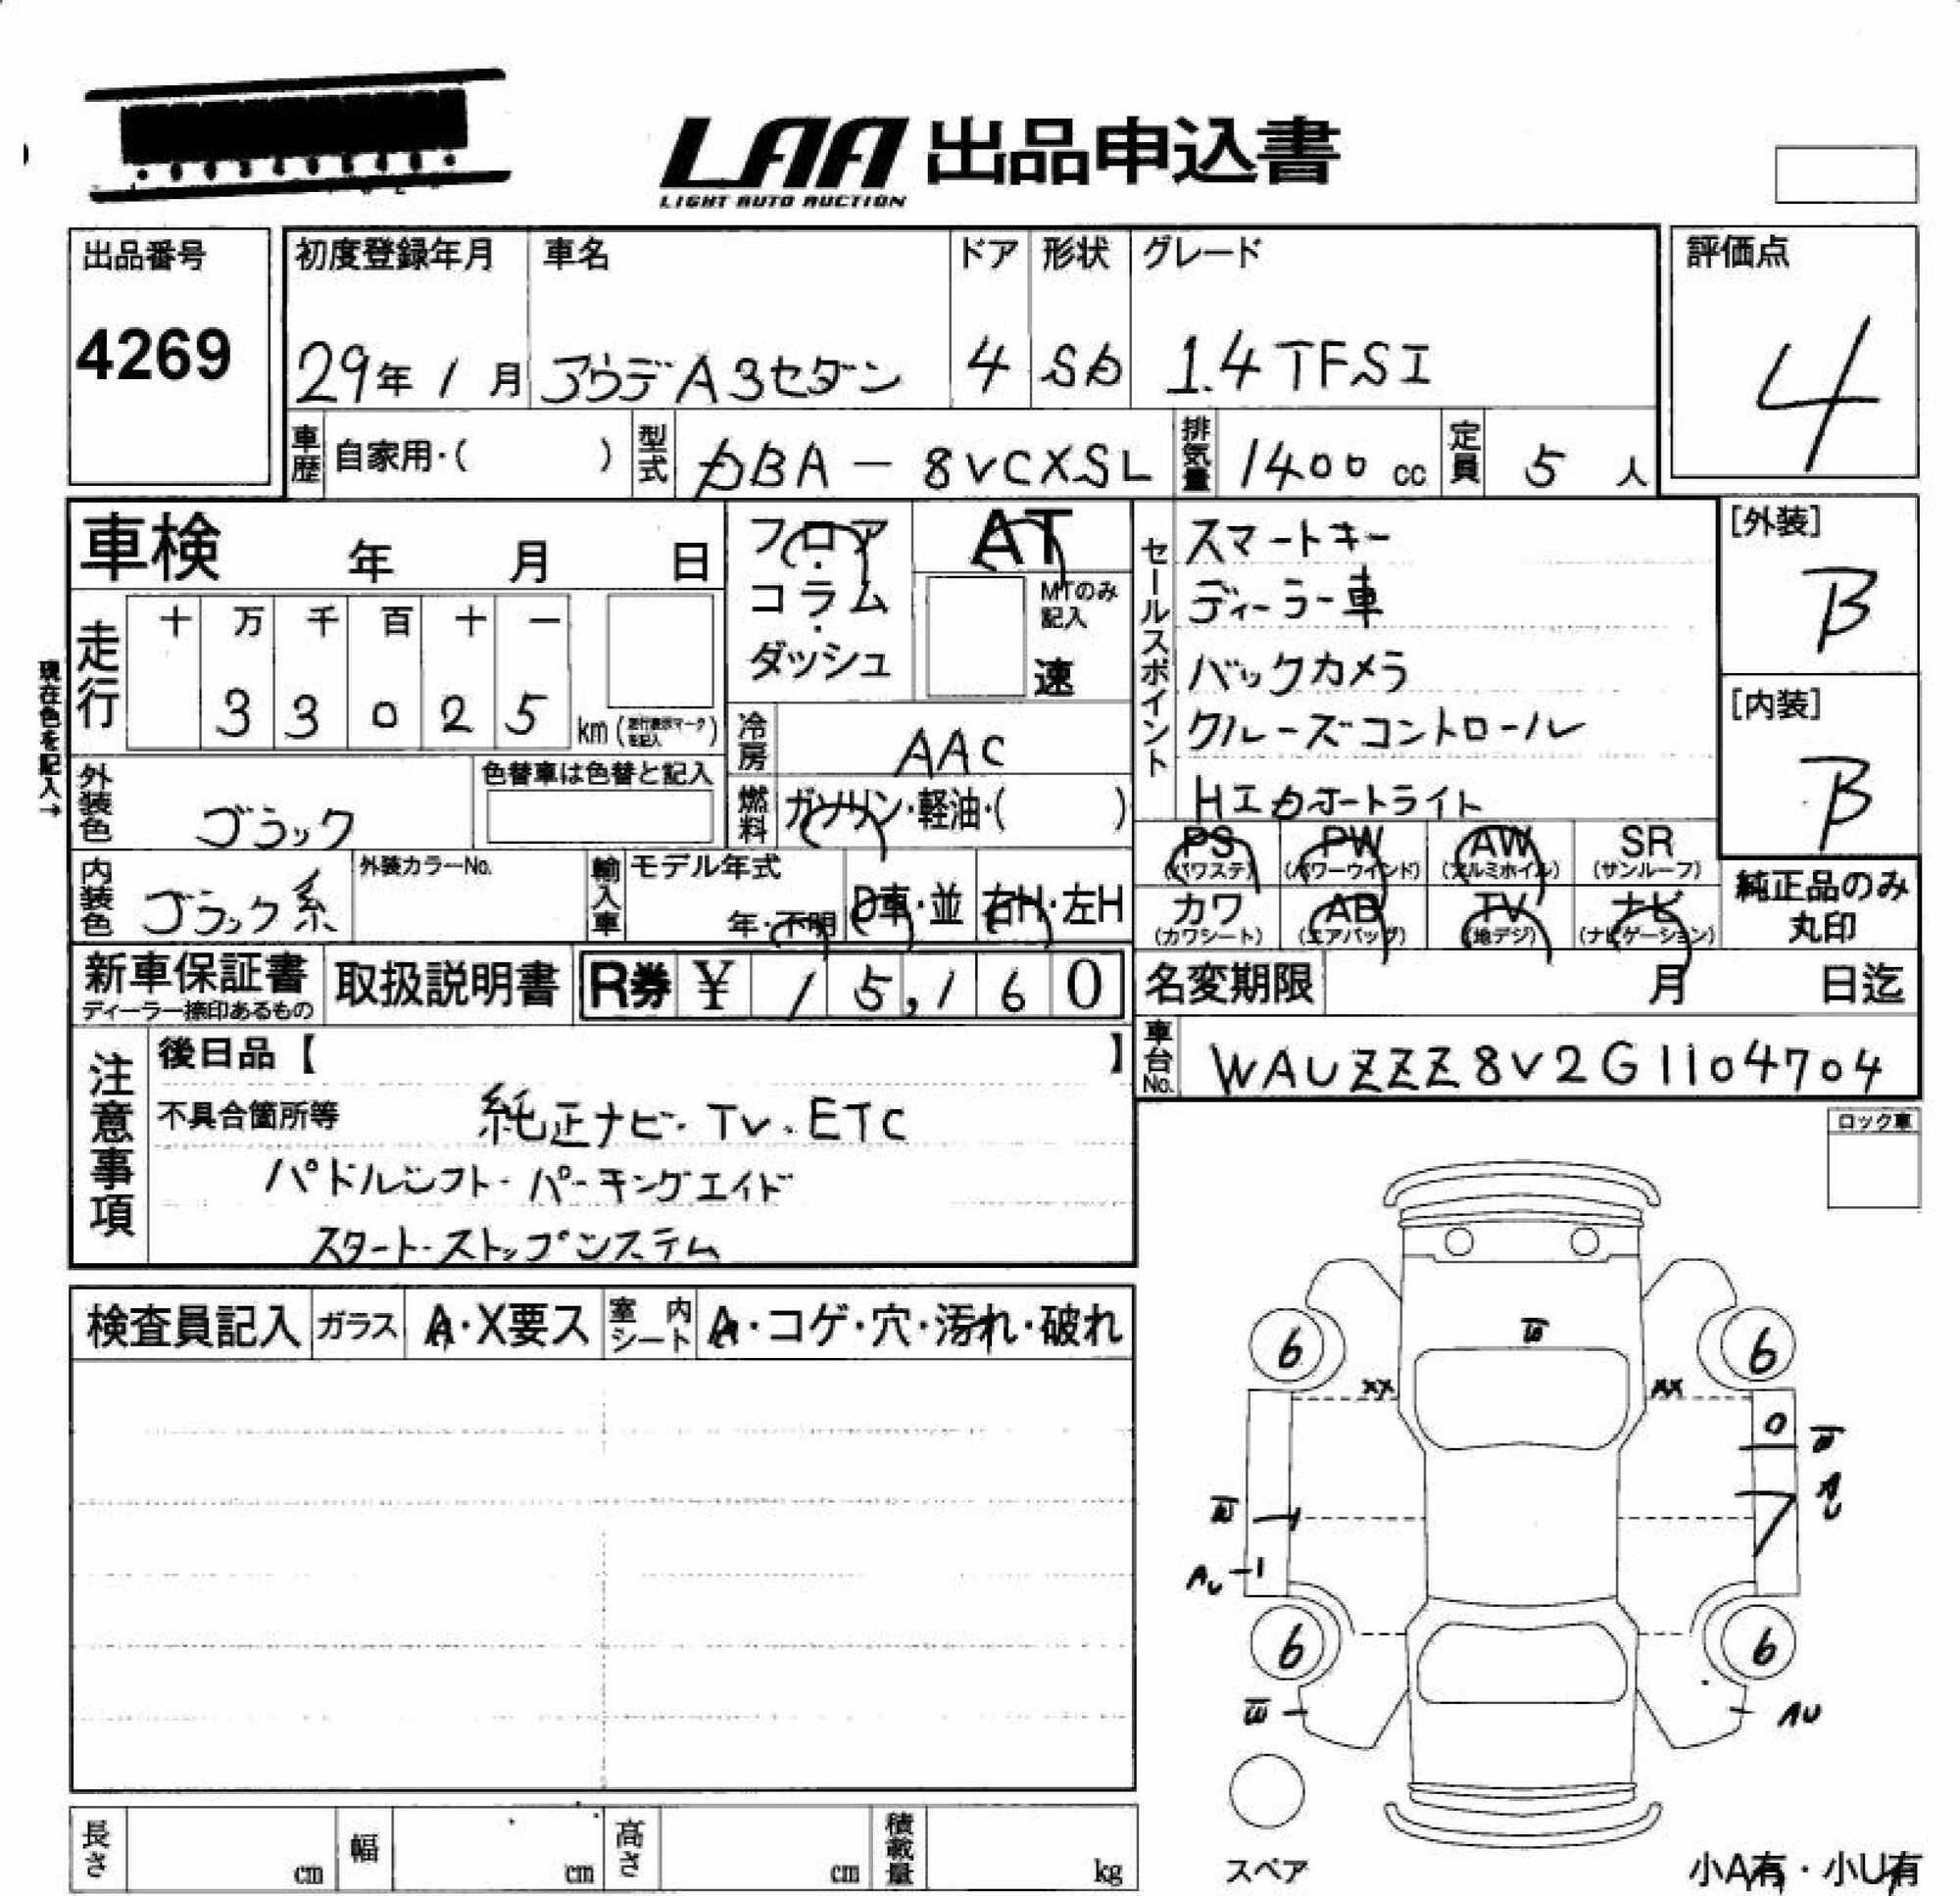 LAA 出品申込書
LIGHT AUTO AUCTION
出品番号
4269
初度登録年月 車名 ドア 形状 グレード
29年1月 アウデA3セダン 4 Sb 1.4TFSI
評価点
4
車歴 自家用・( ) 型式 DBA-8VCXSL 排気量 1400cc 定員 5人
車検 年 月 日
フロア・コラム・ダッシュ
AT
MTのみ記入
速
セールスポイント
スマートキー
ディーラー車
バックカメラ
クルーズコントロール
HIDオートライト
[外装]
B
[内装]
B
現在色を記入→
走行 十 万 千 百 十 一
3 3 0 2 5 km(走行表示マークを記入)
冷房 AAC
燃料 ガソリン・軽油・( )
外装色 ブラック
色替車は色替と記入
PS PW AW SR
(パワステ) (パワーウインド) (アルミホイル) (サンルーフ)
カワ AB TV ナビ
(カワシート) (エアバッグ) (地デジ) (ナビゲーション)
純正品のみ丸印
内装色 ブラック系
外装カラーNo.
輸入車 モデル年式 年・不明 D車・並 右H・左H
新車保証書
ディーラー捺印あるもの
取扱説明書
R券 ¥ 15,160
名変期限 月 日迄
車台No. WAUZZZ8V2G1104704
注意事項
後日品【 】
不具合箇所等 純正ナビ・TV・ETC
パドルシフト・パーキングエイド
スタート・ストップシステム
ロック車
検査員記入 ガラス A・X要ス 室内シート A・コゲ・穴・汚れ・破れ
W
6 6
XX XX
0
W
AU
7
W
AU 1
6 6
W AU
スペア
小A有・小U有
長さ cm 幅 cm 高さ cm 積載量 kg